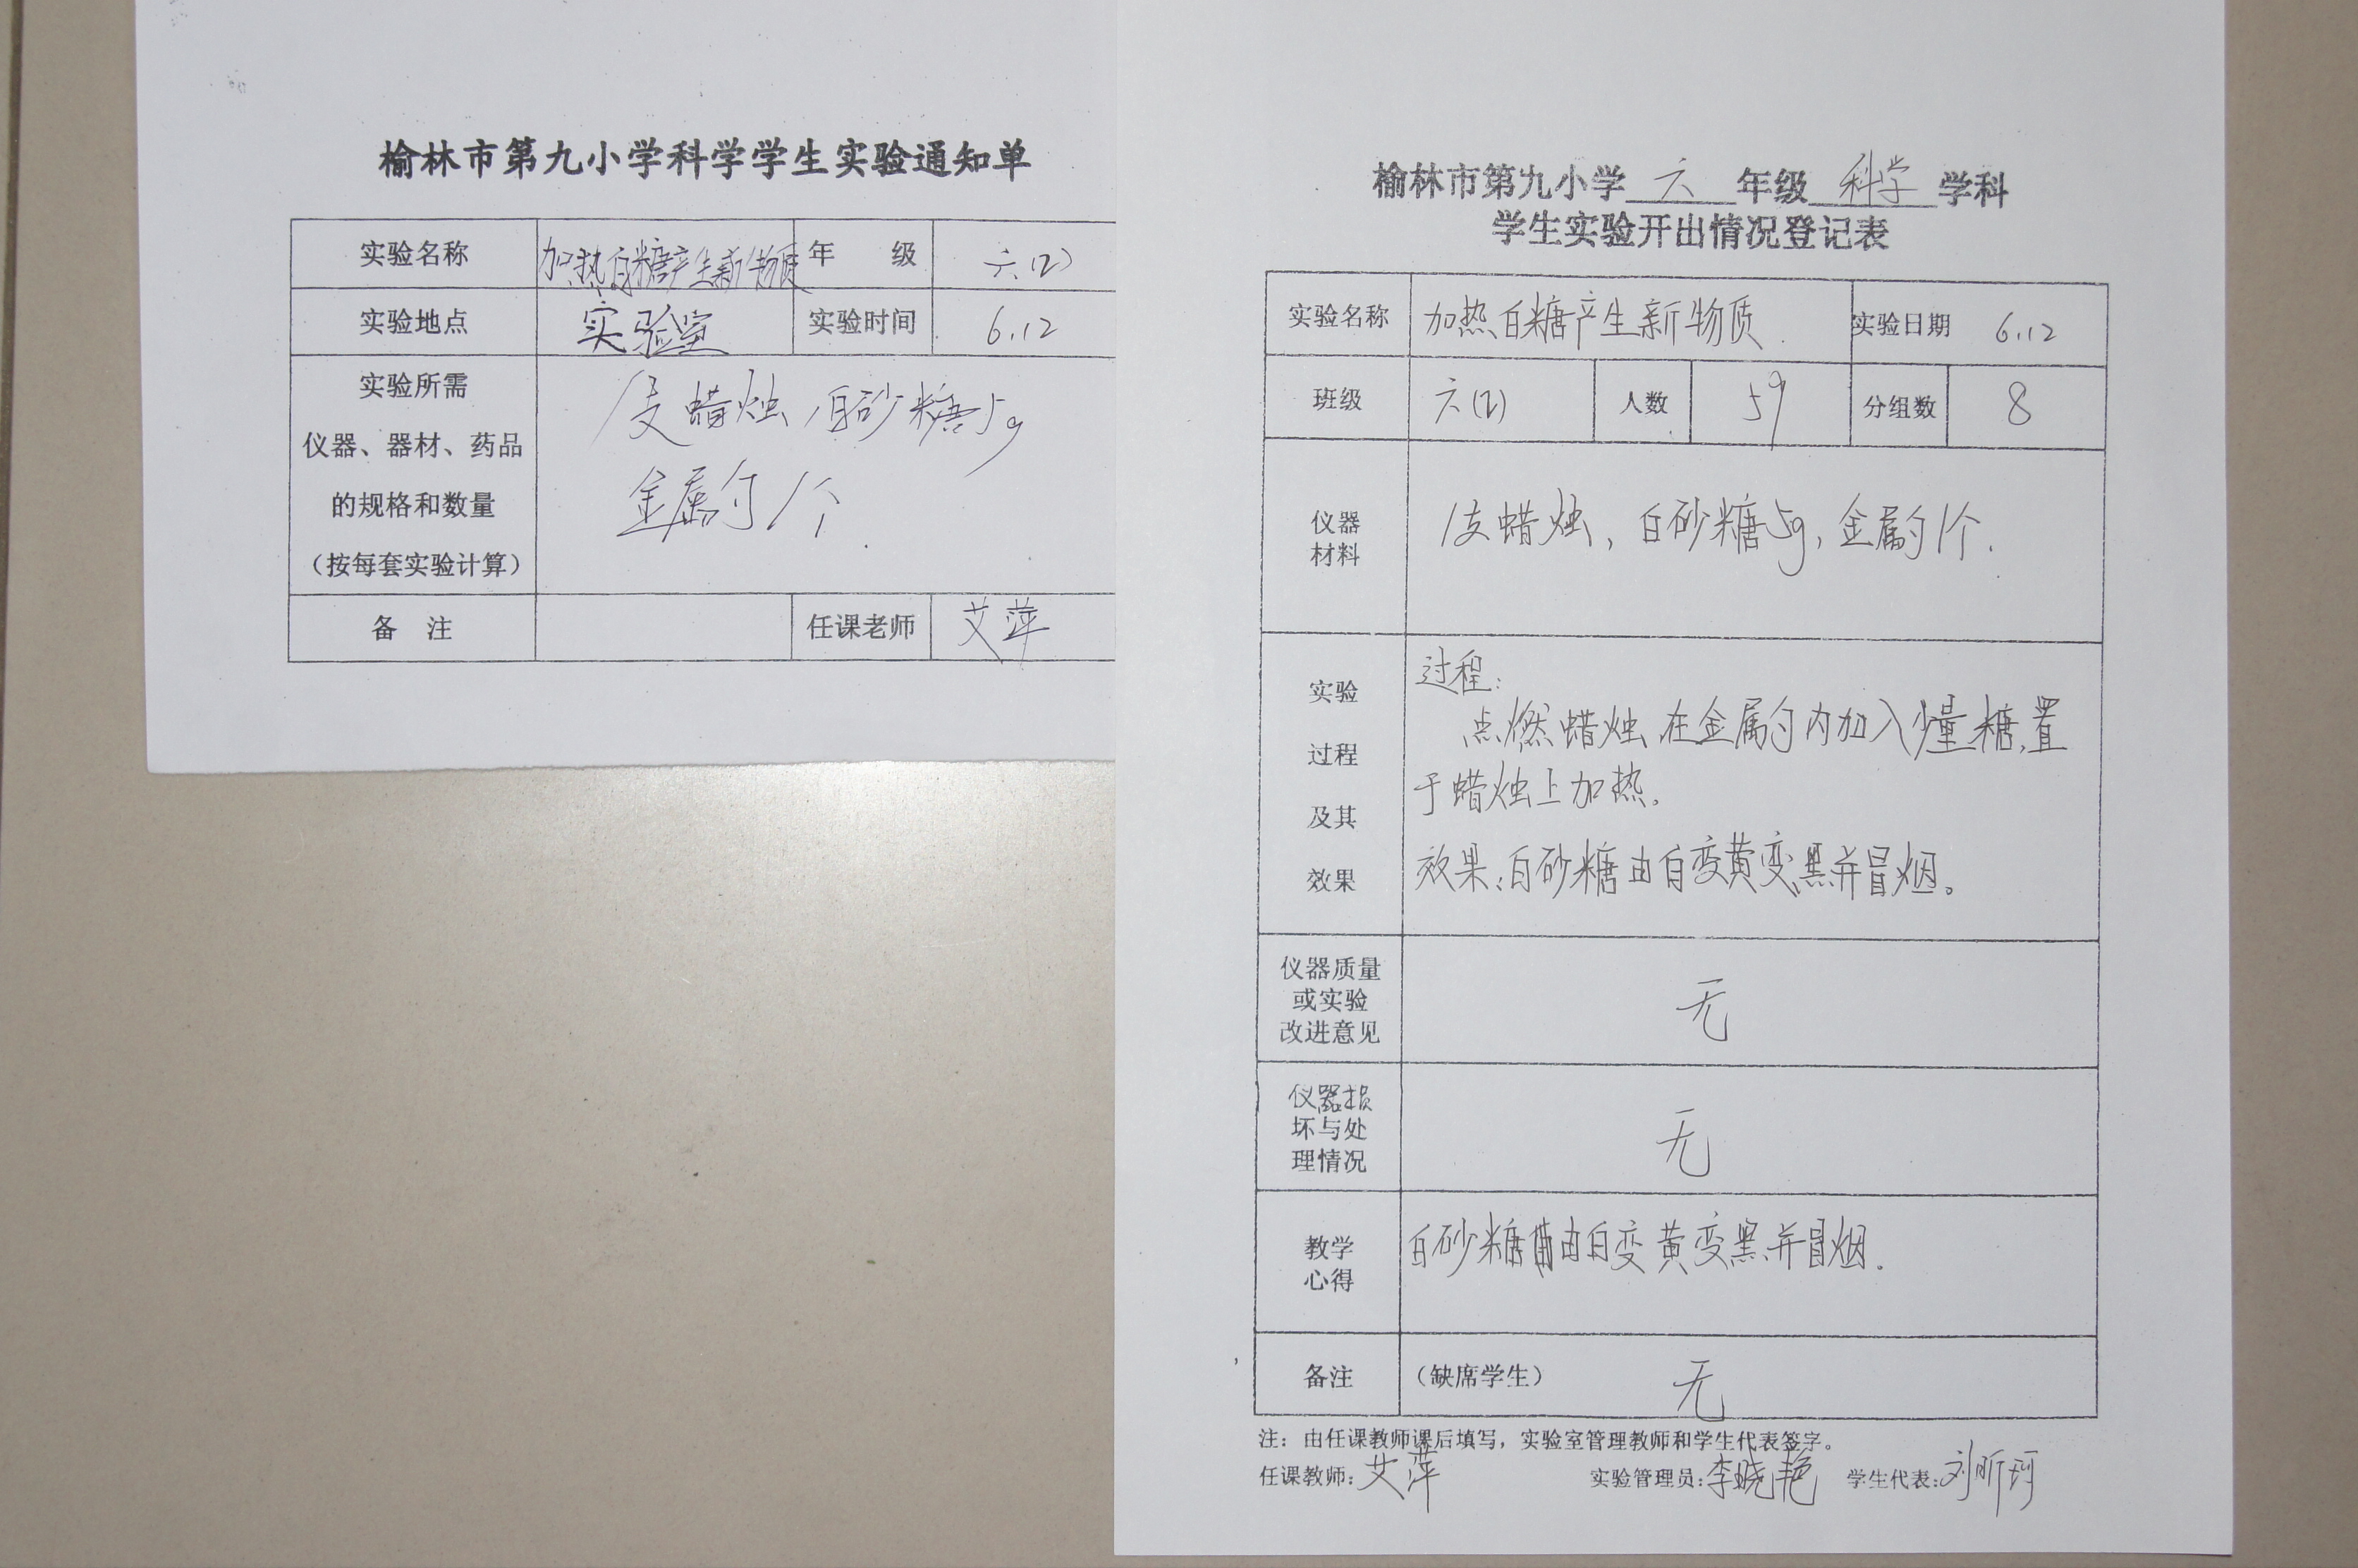 榆林市第九小学科学学生实验通知单
实验名称 加热白糖产生新物质 年 级 六(2)
实验地点 实验室 实验时间 6.12
实验所需
仪器、器材、药品
的规格和数量
(按每套实验计算)
1支蜡烛 白砂糖5g
金属勺1个.
备 注 任课老师 艾萍
榆林市第九小学 六 年级 科学 学科
学生实验开出情况登记表
实验名称 加热白糖产生新物质. 实验日期 6.12
班级 六(2) 人数 59 分组数 8
仪器
材料
1支蜡烛, 白砂糖5g, 金属勺1个.
实验
过程
及其
效果
过程:
点燃蜡烛,在金属勺内加入少量糖,置
于蜡烛上加热。
效果:白砂糖由白变黄变黑并冒烟。
仪器质量
或实验
改进意见
无
仪器损
坏与处
理情况
无
教学
心得
白砂糖由白变黄变黑并冒烟.
备注 (缺席学生) 无
注: 由任课教师课后填写,实验室管理教师和学生代表签字。
任课教师: 艾萍 实验管理员: 李晓艳 学生代表: 刘昕珂